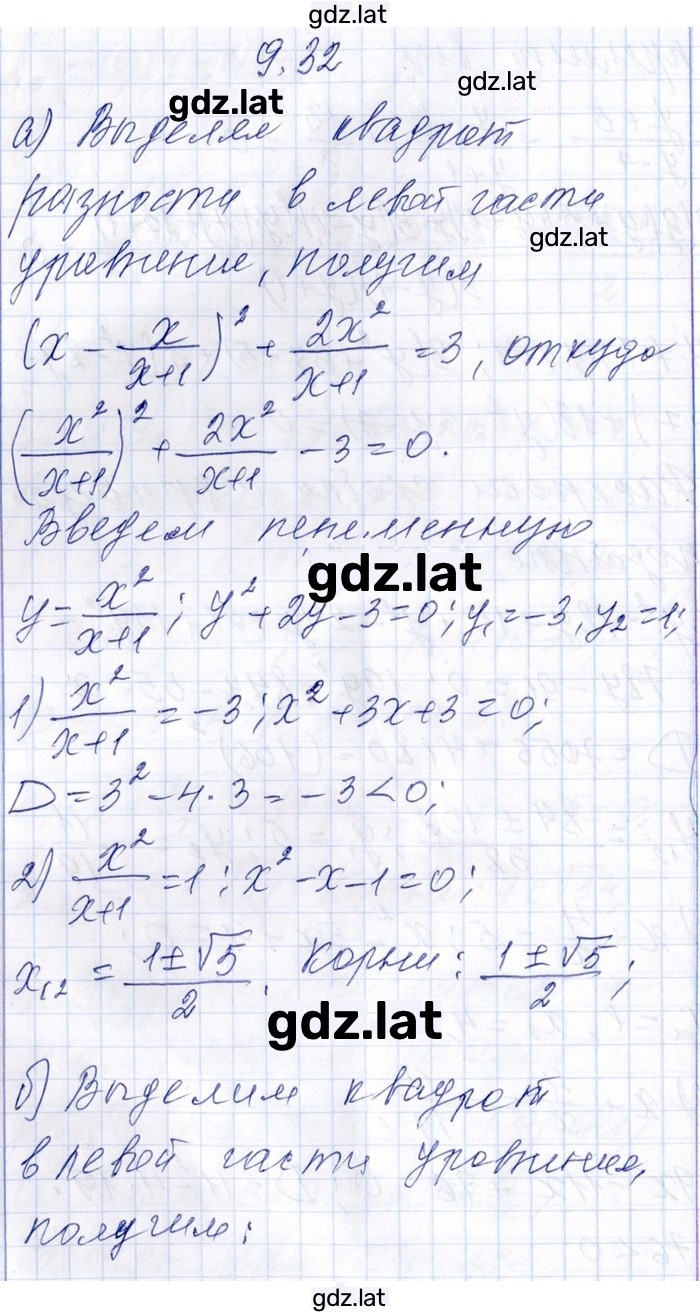 gdz.lat
9.32
gdz.lat
gdz.lat
а) Выделяя квадрат
разности в левой части
gdz.lat
уравнение, получим
(x - x/(x+1))² + 2x²/(x+1) = 3, откуда
(x²/(x+1))² + 2x²/(x+1) - 3 = 0.
Введем переменную
gdz.lat
y = x²/(x+1); y² + 2y - 3 = 0; y₁ = -3, y₂ = 1;
1) x²/(x+1) = -3; x² + 3x + 3 = 0;
D = 3² - 4·3 = -3 < 0;
2) x²/(x+1) = 1; x² - x - 1 = 0;
x₁,₂ = (1±√5)/2. Корни: (1±√5)/2;
gdz.lat
б) Выделим квадрат
в левой части уравнения,
получим:
gdz.lat